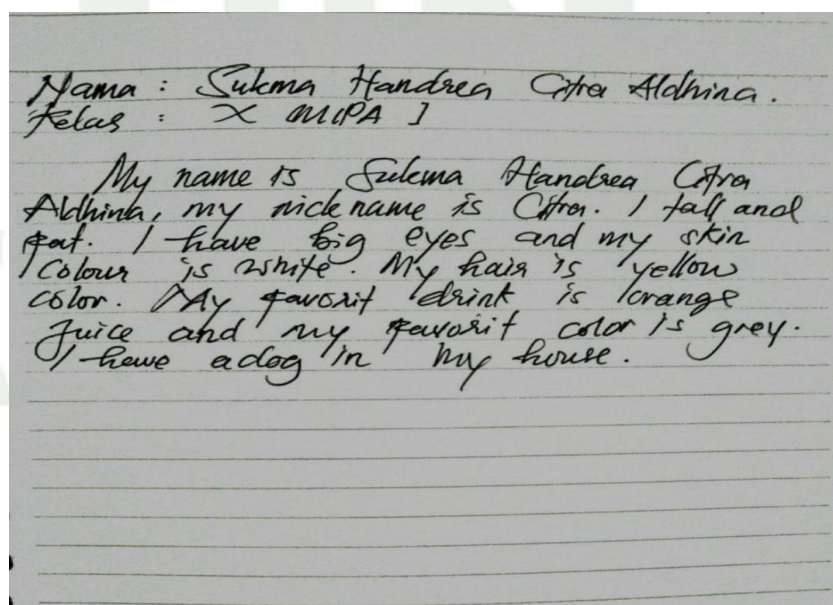 Nama : Sukma Handrea Citra Aldhina.
Kelas : X MIPA 1
My name is Sukma Handrea Citra
Aldhina, my nick name is Citra. I tall and
fat. I have big eyes and my skin
colour is white. My hair is yellow
color. My favorit drink is orange
juice and my favorit color is grey.
I have a dog in my house.